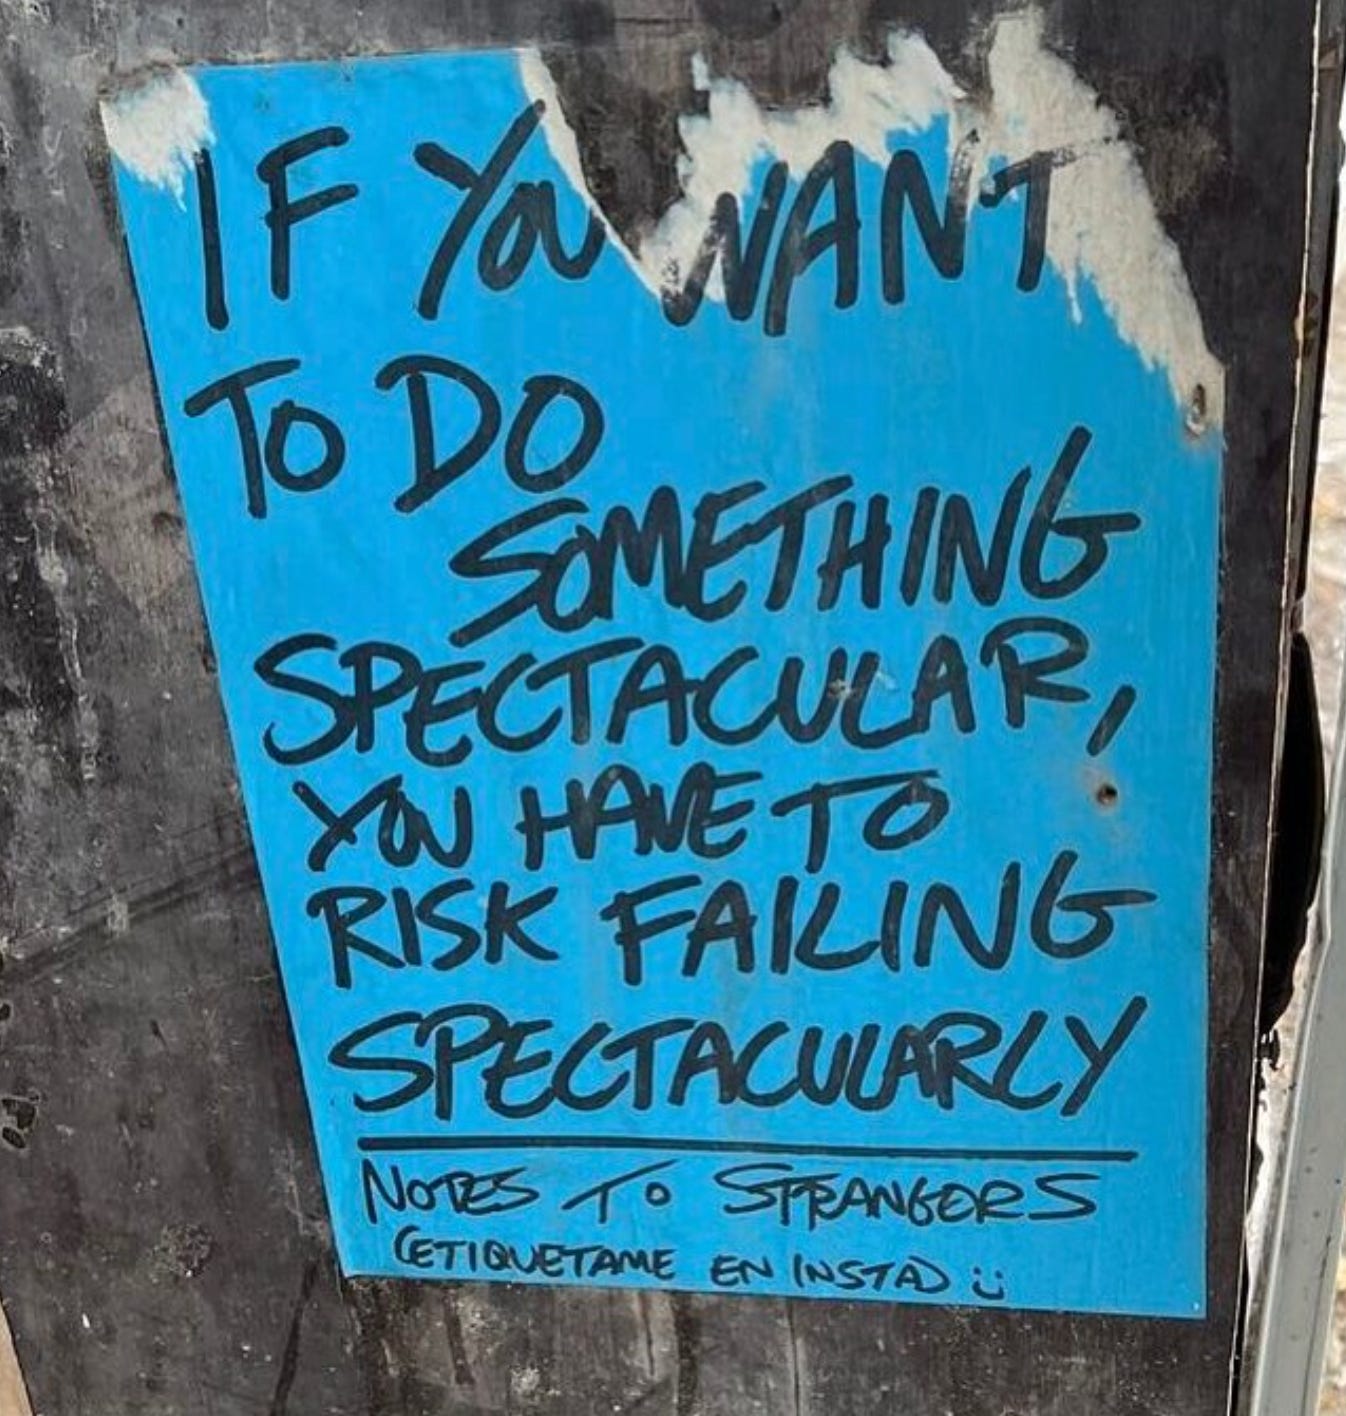 IF YOU WANT
TO DO
SOMETHING
SPECTACULAR,
YOU HAVE TO
RISK FAILING
SPECTACULARLY
NOTES TO STRANGERS
(ETIQUETAME EN INSTA) ü